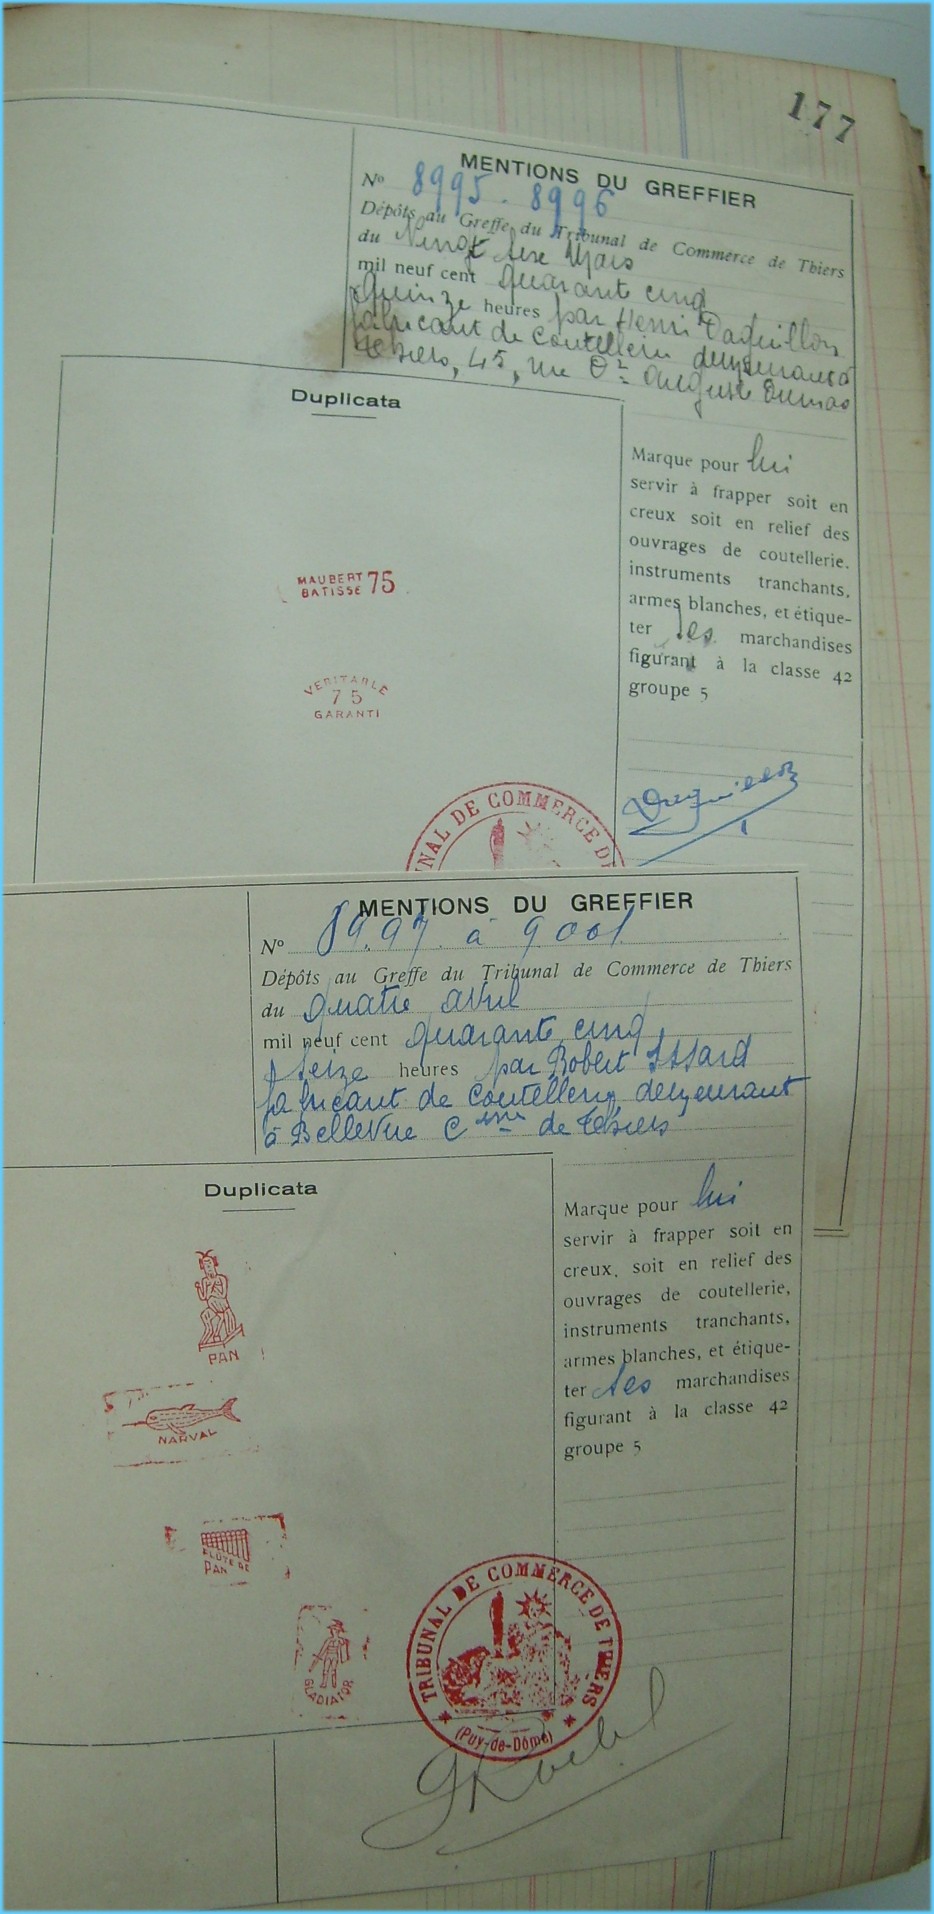 177
MENTIONS DU GREFFIER
No 8995 - 8996
Dépôts au Greffe du Tribunal de Commerce de Thiers
du Vingt Mars
mil neuf cent quarante cinq
quinze heures par Henri Daguillon
fabricant de coutellerie demeurant à
Thiers, 45, rue Dr Auguste Dumas
Duplicata
Marque pour lui
servir à frapper soit en
creux soit en relief des
ouvrages de coutellerie.
instruments tranchants,
armes blanches, et étique-
ter les marchandises
figurant à la classe 42
groupe 5
MAUBERT 75
BATISSE
VERITABLE
75
GARANTI
NAL DE COMMERCE DE
Daguillon
MENTIONS DU GREFFIER
No 8997 à 9001
Dépôts au Greffe du Tribunal de Commerce de Thiers
du quatre avril
mil neuf cent quarante cinq
seize heures par Robert Issard
fabricant de coutellerie demeurant
à Bellevue Cme de Thiers
Duplicata
Marque pour lui
servir à frapper soit en
creux, soit en relief des
ouvrages de coutellerie,
instruments tranchants,
armes blanches, et étique-
ter les marchandises
figurant à la classe 42
groupe 5
PAN
NARVAL
FLUTE DE
PAN
GLADIATOR
TRIBUNAL DE COMMERCE DE THIERS
(Puy-de-Dôme)